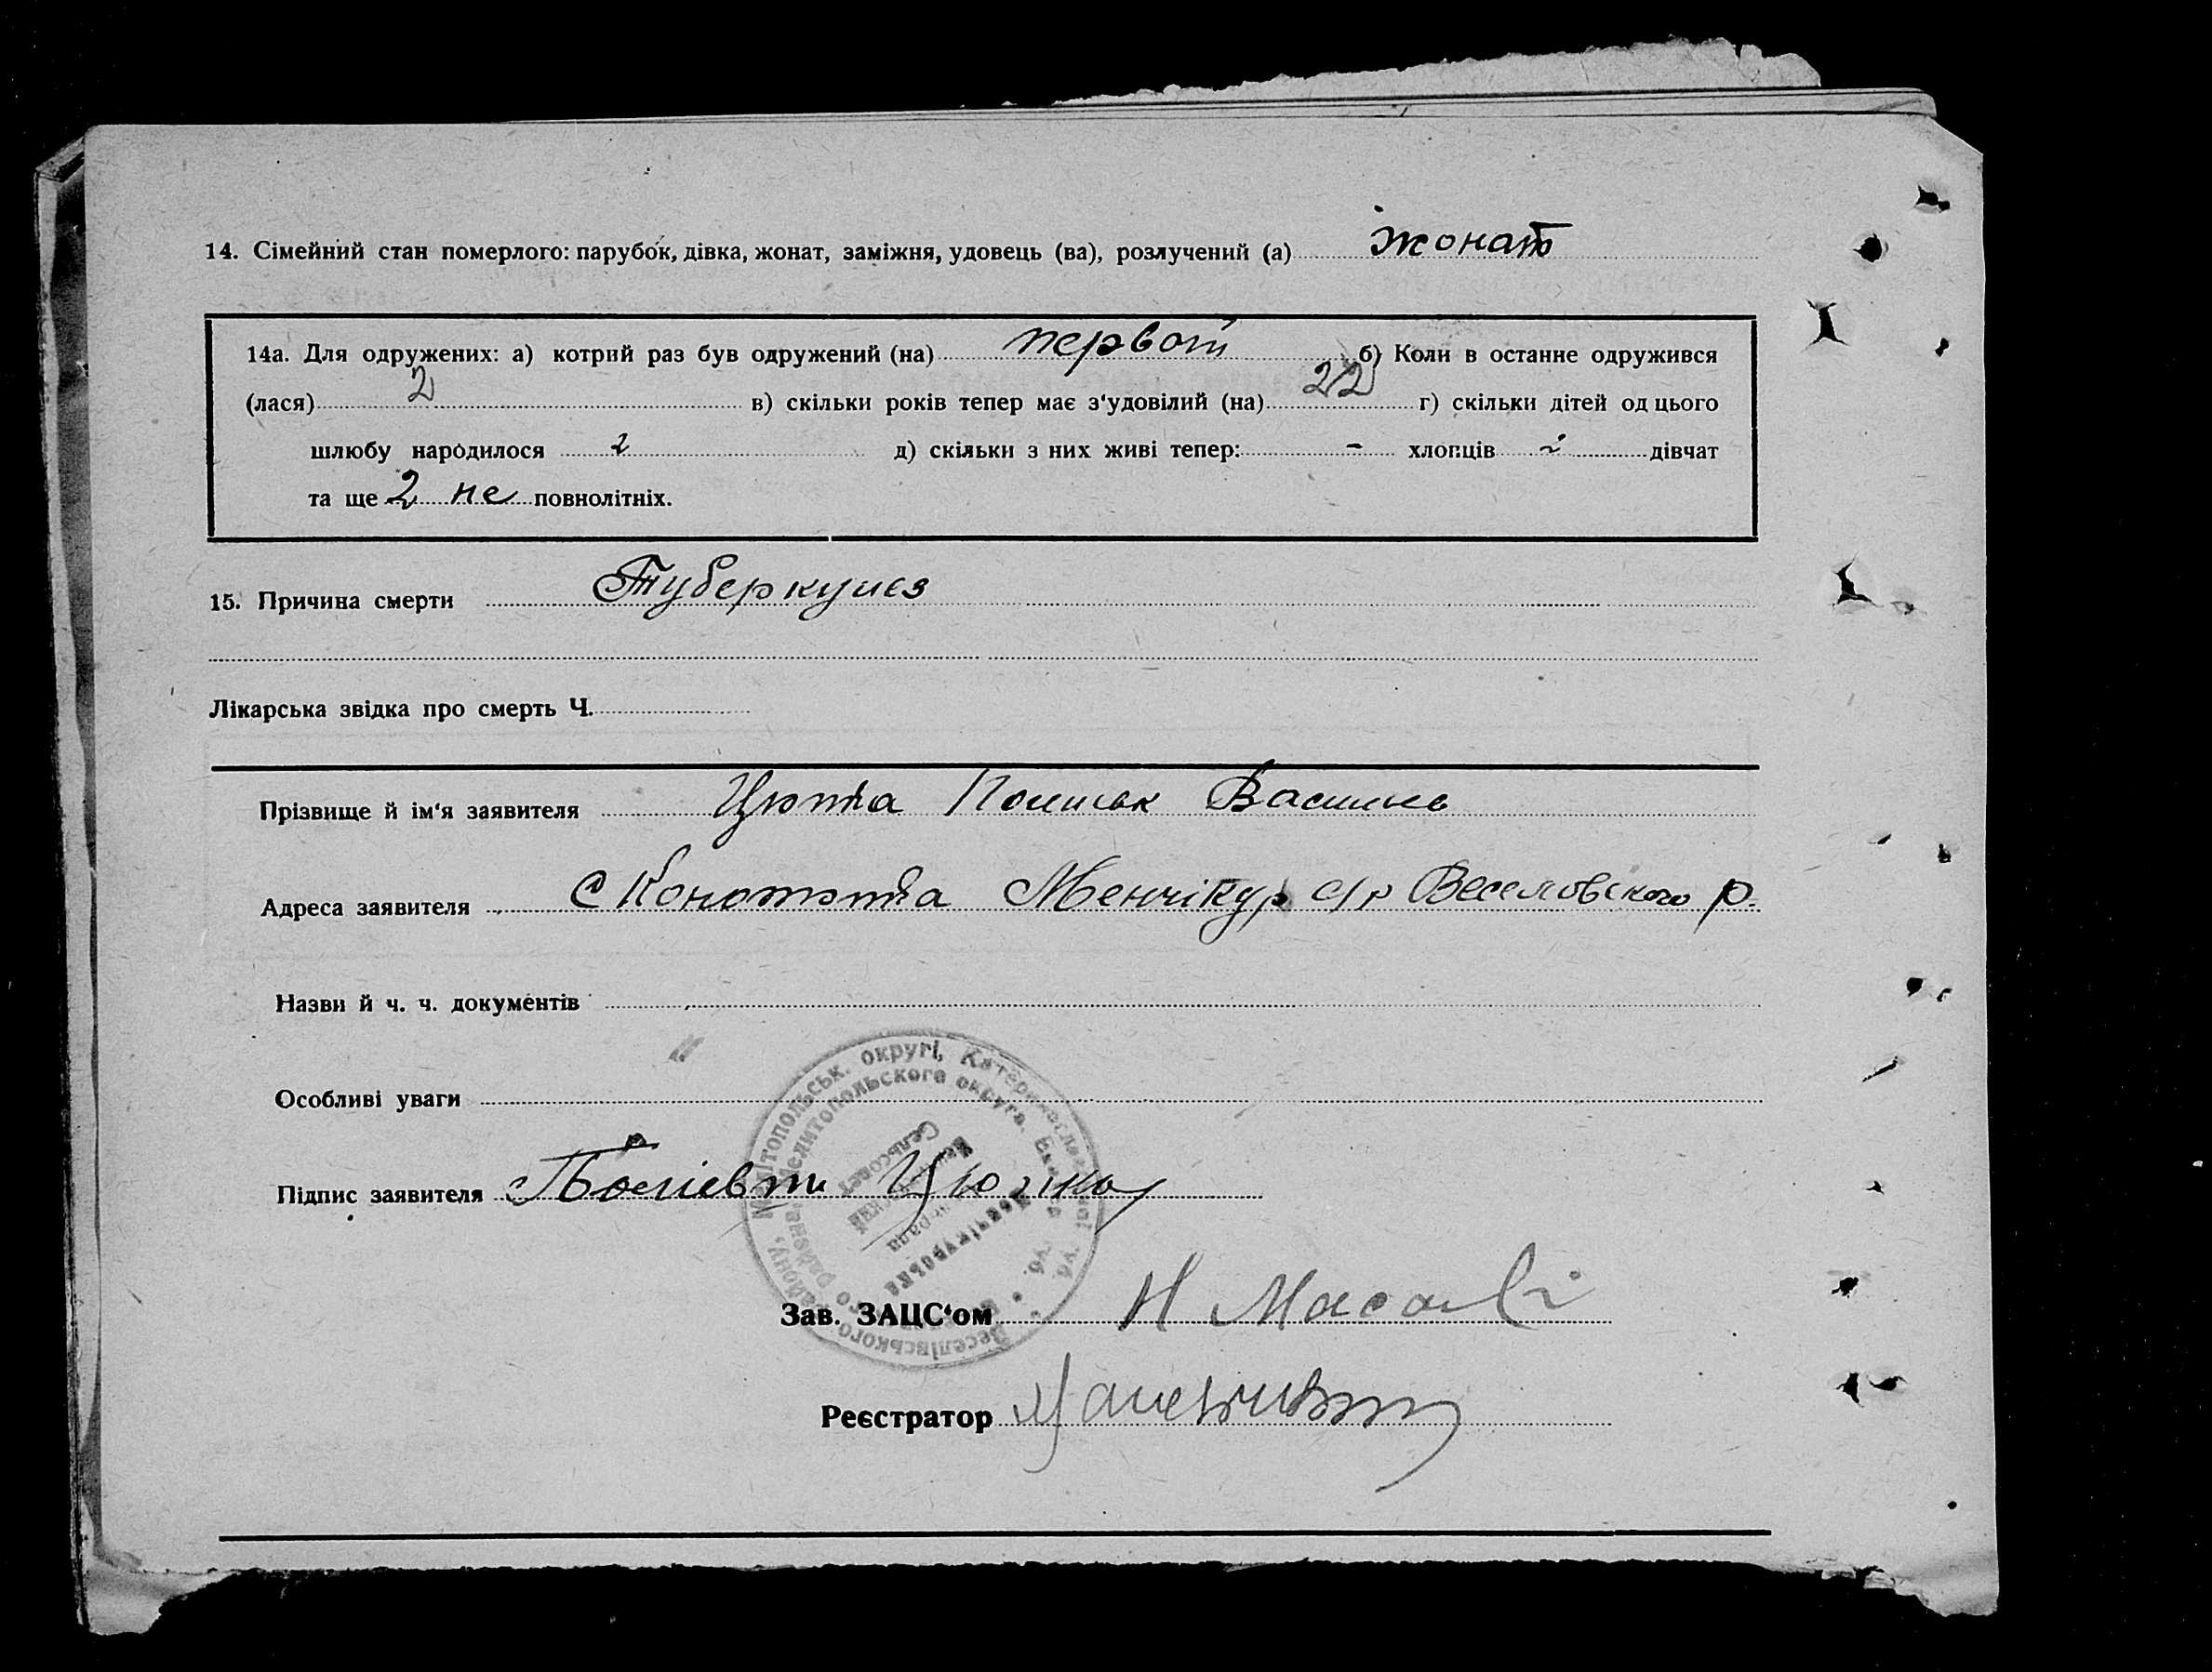 14. Сімейний стан померлого: парубок, дівка, жонат, заміжня, удовець (ва), розлучений (а) жонат
14а. Для одружених: а) котрий раз був одружений (на) первой б) Коли в останне одружився
(лася) 2 в) скільки років тепер має з'удовілий (на) 22 г) скільки дітей од цього
шлюбу народилося 2 д) скільки з них живі тепер: - хлопців 2 дівчат
та ще 2 не повнолітніх.
15. Причина смерти Туберкульоз
Лікарська звідка про смерть Ч.
Прізвище й ім'я заявителя Цюпка Василь
Адреса заявителя с Менчікур с/р Веселовского р.
Назви й ч. ч. документів
Особливі уваги
Підпис заявителя
Зав. ЗАЦС'ом Н
Реєстратор
Веселівського району, Мелітопольськ. округі, Катеринославської губ.
Мелитопольского округа, губ.
Менчікурська рада
Сельсовет